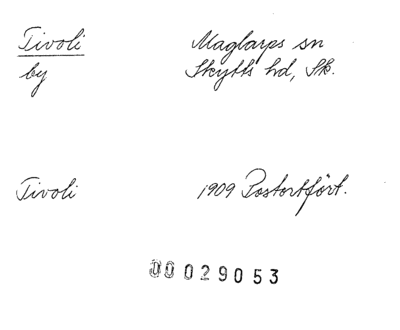 Tivoli Maglarps sn
by Skytts hd, Sk.
Tivoli 1909 Postortfört.
00029053